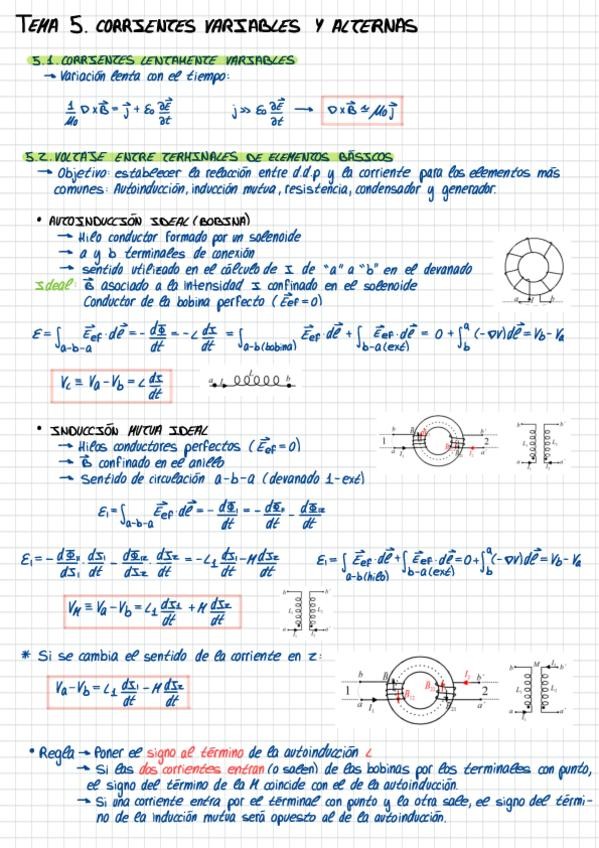 TEMA 5. CORRIENTES VARIABLES Y ALTERNAS
5.1. CORRIENTES LENTAMENTE VARIABLES
→ Variación lenta con el tiempo:
1/μ₀ ∇×B⃗ = j⃗ + ε₀ ∂E⃗/∂t    j >> ε₀ ∂E⃗/∂t → ∇×B⃗ ≅ μ₀j⃗
5.2. VOLTAJE ENTRE TERMINALES DE ELEMENTOS BÁSICOS
→ Objetivo: establecer la relación entre d.d.p y la corriente para los elementos más
comunes: Autoinducción, inducción mutua, resistencia, condensador y generador.
• AUTOINDUCCIÓN IDEAL (BOBINA)
→ Hilo conductor formado por un solenoide
→ a y b terminales de conexión
→ sentido utilizado en el cálculo de I de "a" a "b" en el devanado
Ideal: B⃗ asociado a la intensidad I confinado en el solenoide
Conductor de la bobina perfecto (E⃗ef = 0)
a I b
ε = ∫a-b-a E⃗ef · dl⃗ = - dΦ/dt = - L dI/dt = ∫a-b(bobina) E⃗ef · dl⃗ + ∫b-a(ext) E⃗ef · dl⃗ = 0 + ∫b^a (-∇V)dl⃗ = Vb - Va
VL ≡ Va - Vb = L dI/dt
a L b
• INDUCCIÓN MUTUA IDEAL
→ Hilos conductores perfectos (E⃗ef = 0)
→ B⃗ confinado en el anillo
→ Sentido de circulación a-b-a (devanado 1-ext)
b b' 1 2 a I₁ a'
ε₁ = ∫a-b-a E⃗ef · dl⃗ = - dΦ₁/dt = - dΦ₁₁/dt - dΦ₁₂/dt
ε₁ = - dΦ₁₁/dI₁ · dI₁/dt - dΦ₁₂/dI₂ · dI₂/dt = - L₁ dI₁/dt - M dI₂/dt    ε₁ = ∫a-b(hilo) E⃗ef · dl⃗ + ∫b-a(ext) E⃗ef · dl⃗ = 0 + ∫b^a (-∇V)dl⃗ = Vb - Va
VM ≡ Va - Vb = L₁ dI₁/dt + M dI₂/dt
* Si se cambia el sentido de la corriente en 2:
b I₂ b' 1 2 a I₁ a'
Va - Vb = L₁ dI₁/dt - M dI₂/dt
• Regla → Poner el signo al término de la autoinducción L
→ Si las dos corrientes entran (o salen) de las bobinas por los terminales con punto,
el signo del término de la M coincide con el de la autoinducción.
→ Si una corriente entra por el términal con punto y la otra sale, el signo del térmi-
no de la inducción mutua será opuesto al de la autoinducción.